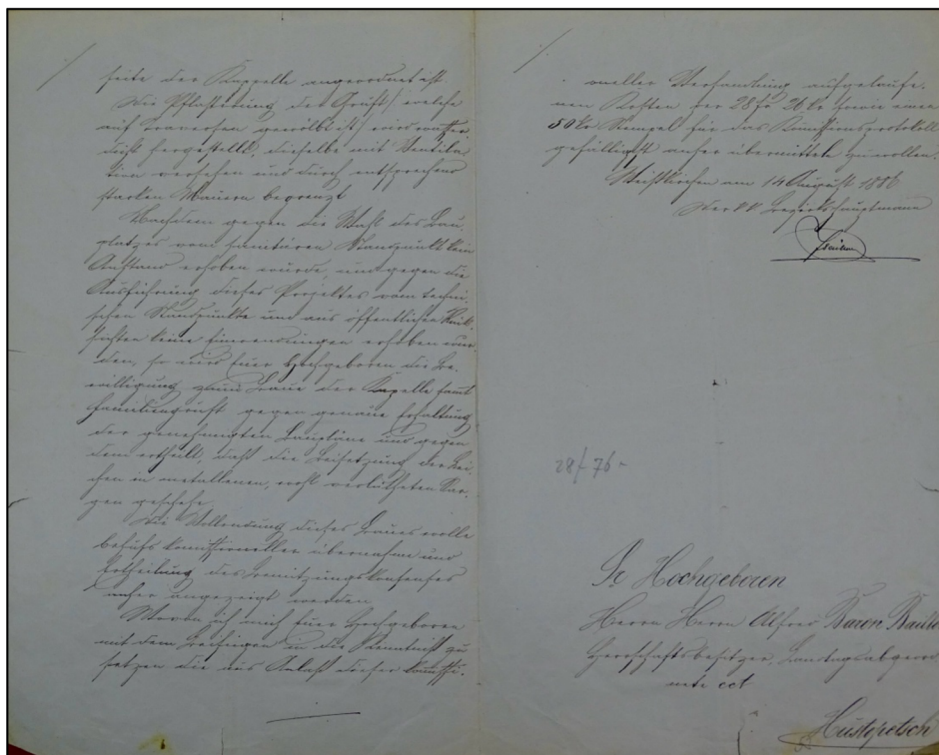 seite der Kappelle angeordnet ist.
Die Pflasterung der Gruft / welche
auf Traversen gewölbt ist / wird wasser
dicht hergestellt, dieselbe mit Ventila-
tion versehen und durch entsprechend
starken Mauern begrenzt
Nachdem gegen die Wahl des Bau-
platzes vom sanitären Standpunkt kein
Anstand erhoben wurde, und gegen die
Ausführung dieses Projektes vom techni-
schen Standpunkte und aus öffentlichen Rück-
sichten keine Einwendungen erhoben wur-
den, so wird Euer Hochgeboren die Be-
willigung zum Baue der Kapelle samt
Familiengruft gegen genaue Einhaltung
der genehmigten Baupläne und gegen
dem ertheilt, daß die Beisetzung der Lei-
chen in metallenen, wohl verlötheten Sär-
gen geschehe.
Die Vollendung dieses Baues wolle
behufs kommissioneller Übernahme und
Ertheilung des Benützungskonsenses
anher angezeigt werden.
Wovon ich mich Euer Hochgeboren
mit dem Beifügen in die Kenntniß zu
setzen die aus Anlaß dieser kommissi-
oneller Verhandlung aufgelaufe-
nen Kosten per 28 f 26 kr sowie einen
50 kr Stempel für das Komissionsprotokoll
gefälligst anher übermitteln zu wollen.
Weißkirchen am 14 August 1886
Der k k Bezirkshauptmann
28f 76 -
Sr Hochgeboren
Herrn Herrn Alfred Baron Baillo
Herrschaftsbesitzer, Landtagsabgeord-
nete ect
Hustopetsch